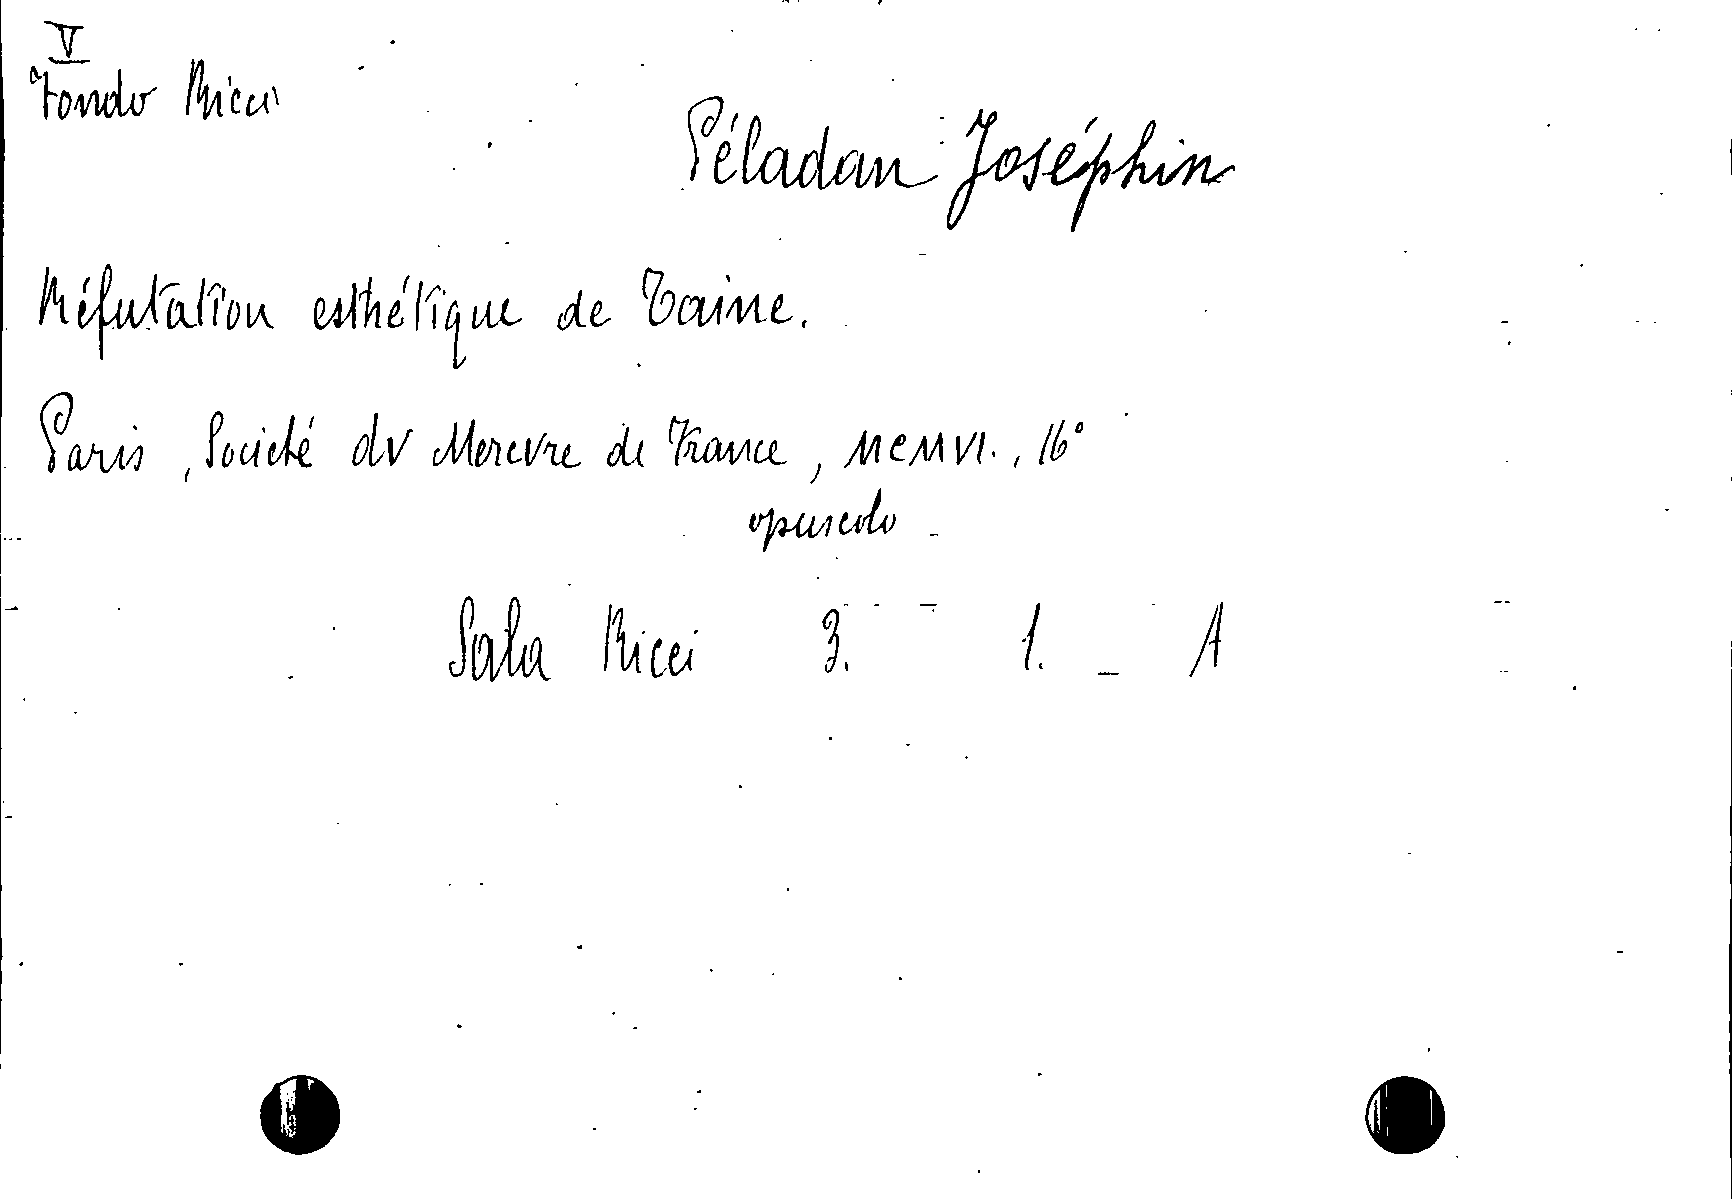 V
Fondo Ricci
Péladan Joséphin
Réfutation esthétique de Taine.
Paris, Societé du Mercure de France, MCMVI., 16°
opuscolo
Sala Ricci 3. 1. - A